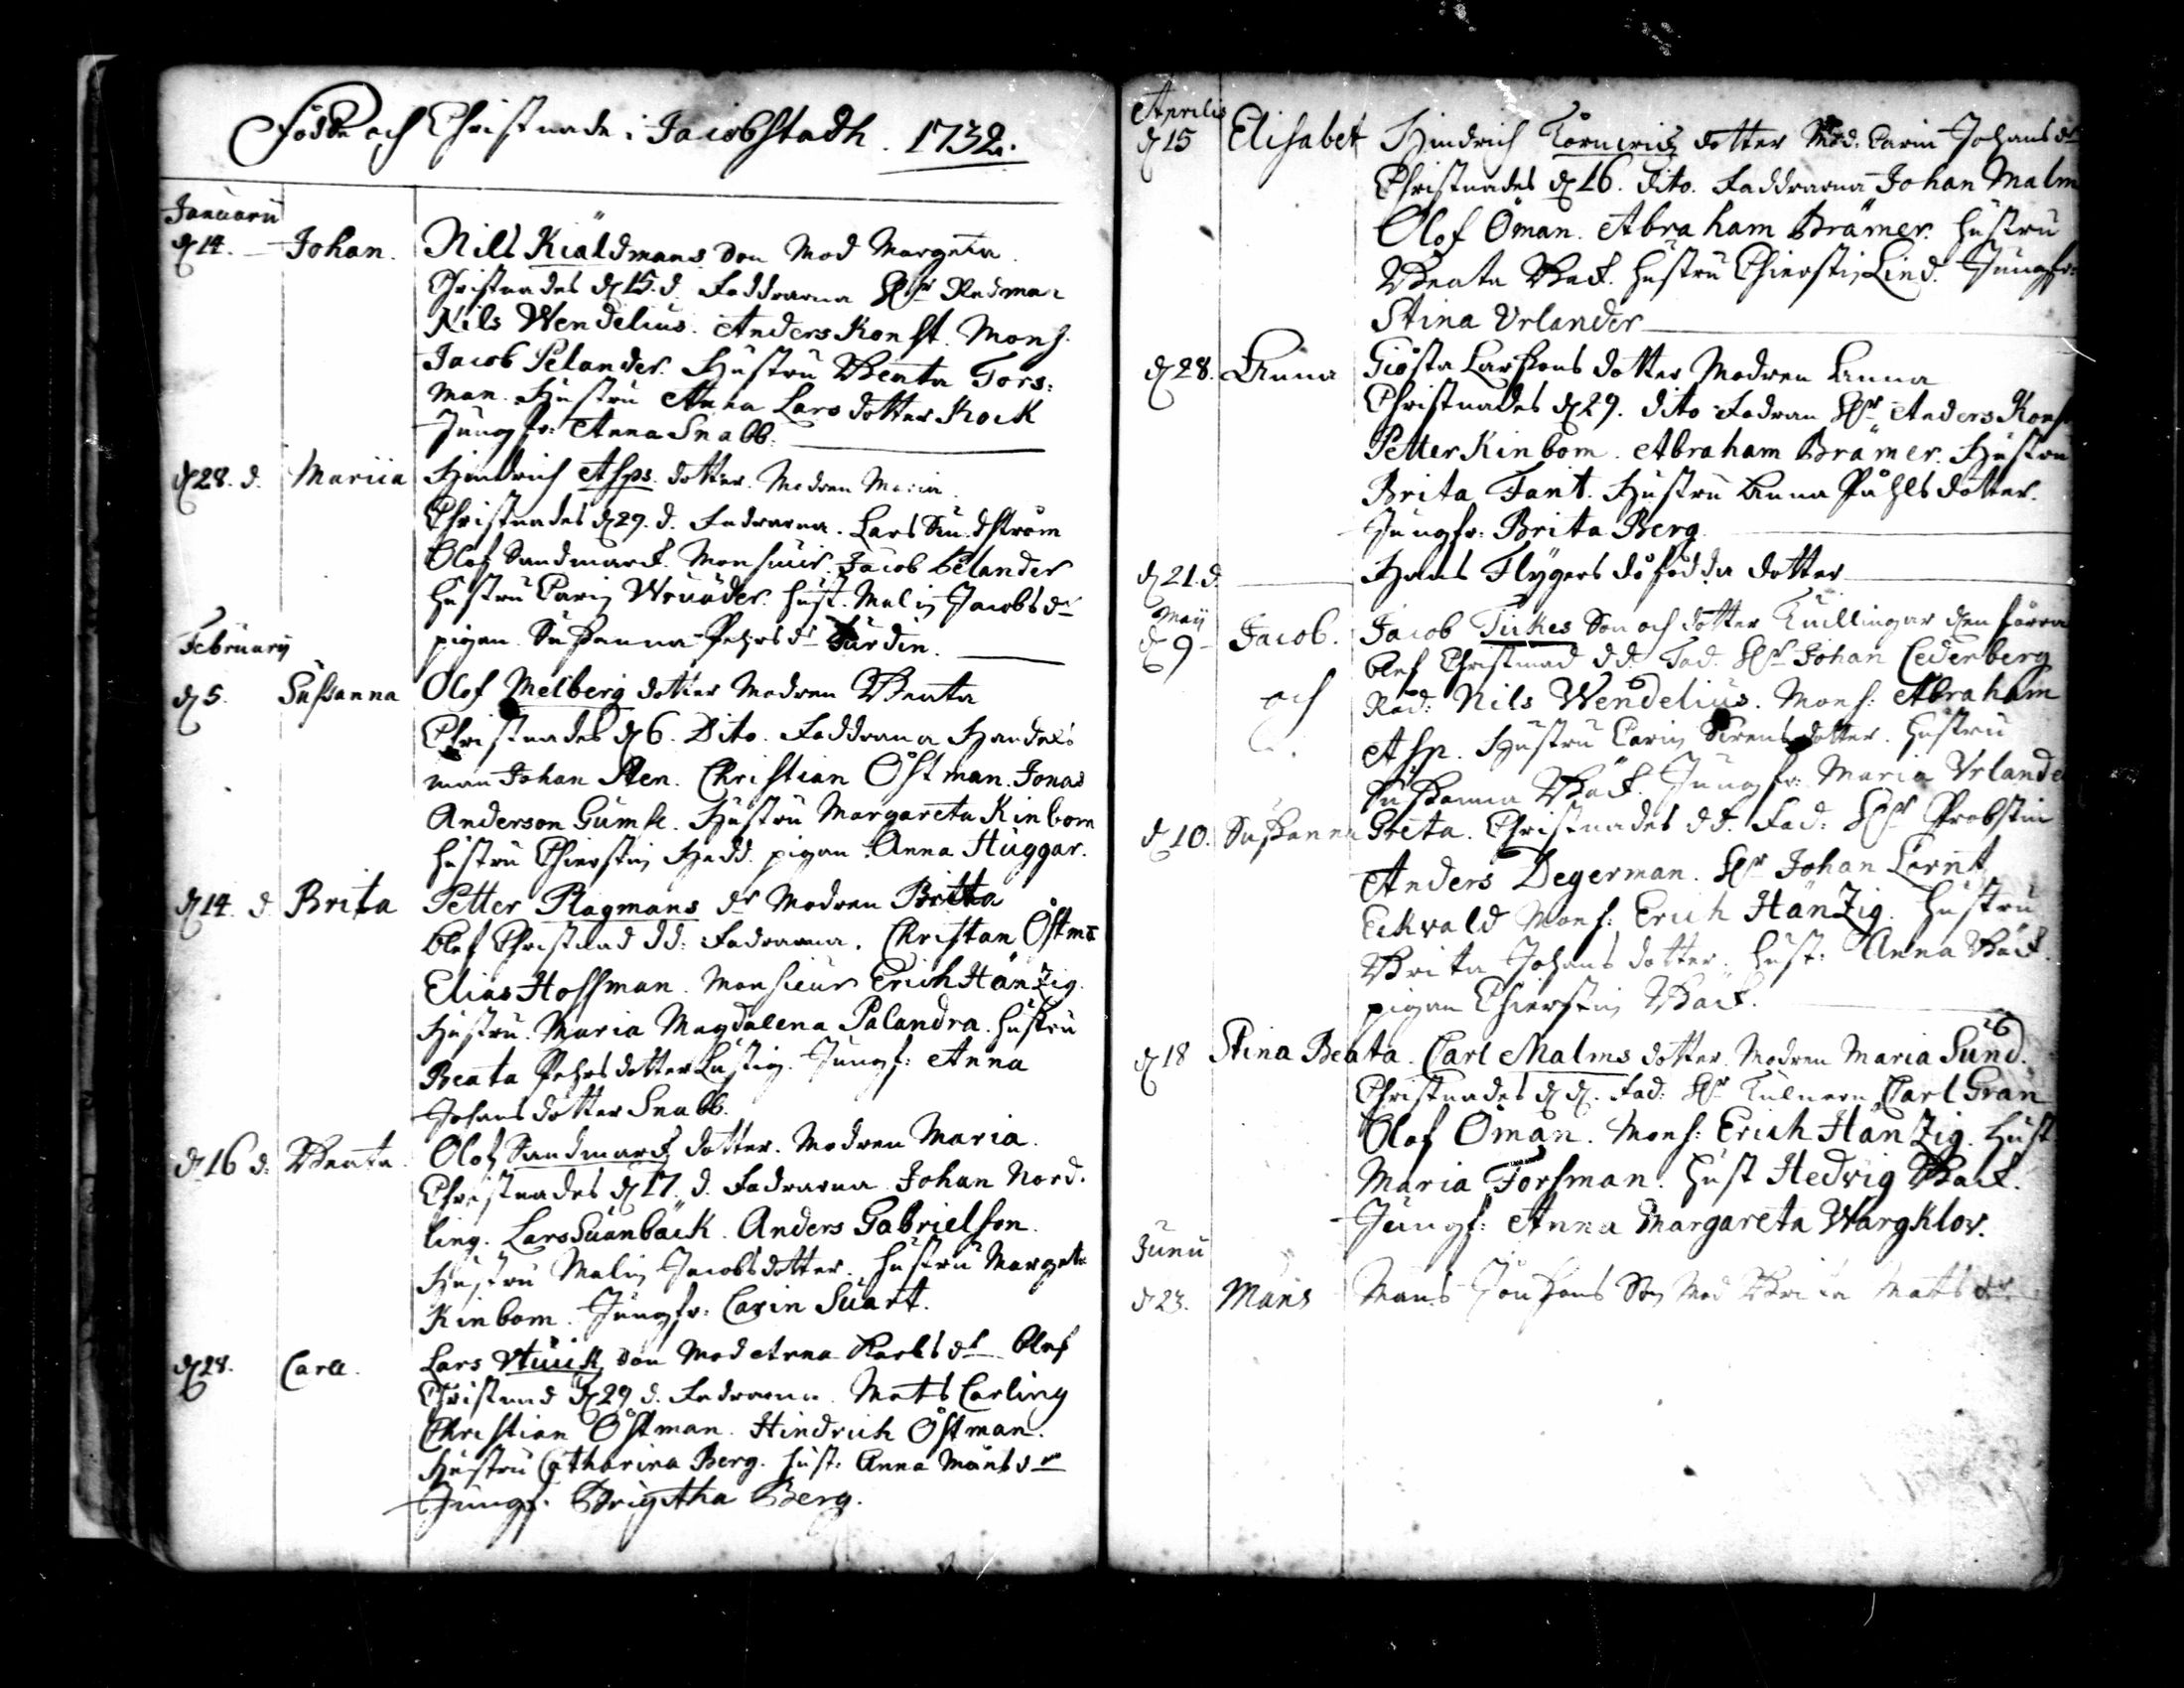 Födde och Christnade i Jacobstadh. 1732.
Januarii
d 14. Johan. Nils Kiäldmans Son Mod Margeta.
Christnades d 15. d. Faddrarna Hr Rådman
Nils Wendelius. Anders Konst. Mons.
Jacob Pelander. Hustru Beata Fors:
man. Hustru Anna Larsdotter Kock
Jungfr: Anna Snabb.
d 28. d. Mariia Hindrich Asps. dotter. Modren Maria.
Christnades d 29. d. Fadrarna. Lars Sundström
Olof Sandmarck. Monsieur. Jacob Pelander
Hustru Carin. Hust. Malin Jacobs dr
pigan. Susanna Pehrs dr
Februarij
d 5. Sussanna Olof Melberg dotter Modren Beata
Christnades d 6. Dito. Faddrarna Handels
man Johan Sten. Christian Östman. Jonas
Anderson Gumse. Hustru Margareta Kinbom
Hustru Chierstin Hedd. pigan Anna Huggar.
d 14. d Brita Petter Plagmans dr Modren Britta
blef Christnad dd: Fadrarna. Christan Östmā
Elias Hoffman. Monsieur Erich Hänzig.
Hustru. Maria Magdalena Palandra. Hustru
Beata Pehrsdotter Lustig. Jungf: Anna
Johansdotter Snabb.
d 16 d: Beata. Olof Sandmarck dotter. Modren Maria.
Christnades d 17. d. Fadrarna Johan Nord.
ling. Lars Suanbäck. Anders Gabrielson.
Hustru Malin Jacobsdotter. Hustru Margeta
Kinbom. Jungfr: Carin Suart.
d 28. Carll. Lars Son Mod Anna Karls dr blef
Christnad d 29 d. Fadrarna. Mats Carling
Christian Östman. Hindrich Östman.
Hustru Catharina Berg. Hust. Anna Månsdr
Jungf. Brigitha Berg.
Aprilis
d 15 Elisabet Hindrich dotter Mod: Carin Johans dr
Christnades d 16. dito. Faddrarna Johan Malm
Olof Öman. Abraham Brämer. Hustru
Beata Back. Hustru Chierstin Lind. Jungfr:
Stina Urlander
d 28. Anna Giösta Larssons dotter Modren Anna
Christnades d 29. dito Fadran Hr Anders Konst
Petter Kinbom. Abraham Brämer. Hustru
Brita Fant. Hustru Anna Påhls dotter.
Jungfr: Brita Berg
d 21. d. Hans Flygers dödfödda dotter
Maij
d 9 Jacob. Jacob Tirkes Son och dotter Tuillingar den förra
blef Christnad dd. Fad. Hr Johan Cederberg
och Råd: Nils Wendelius. Mons: Abraham
Asp. Hustru Carin Sirensdotter. Hustru
Susanna Back. Jungfr: Maria Urlande
d 10. Susanna Greta. Christnades dd. Fad: Hr Probstin
Anders Degerman. Hr Johan Lornt
Eckvald Mons: Erich Hänzig. Hustru
Brita Johans dotter. Hust: Anna Back.
pigan Chierstin Back.
d 18 Stina Beata. Carl Malms dotter. Modren Maria Sund.
Christnades d d. Fad: Hr Tulnern Carl Gran
Olof Öman. Mons: Erich Hänzig. Hust
Maria Forsman. Hust Hedvig Back.
Jungf: Anna Margareta Wargklow.
Junii
d 23. Måns Måns Son Mod Brita Mats dr